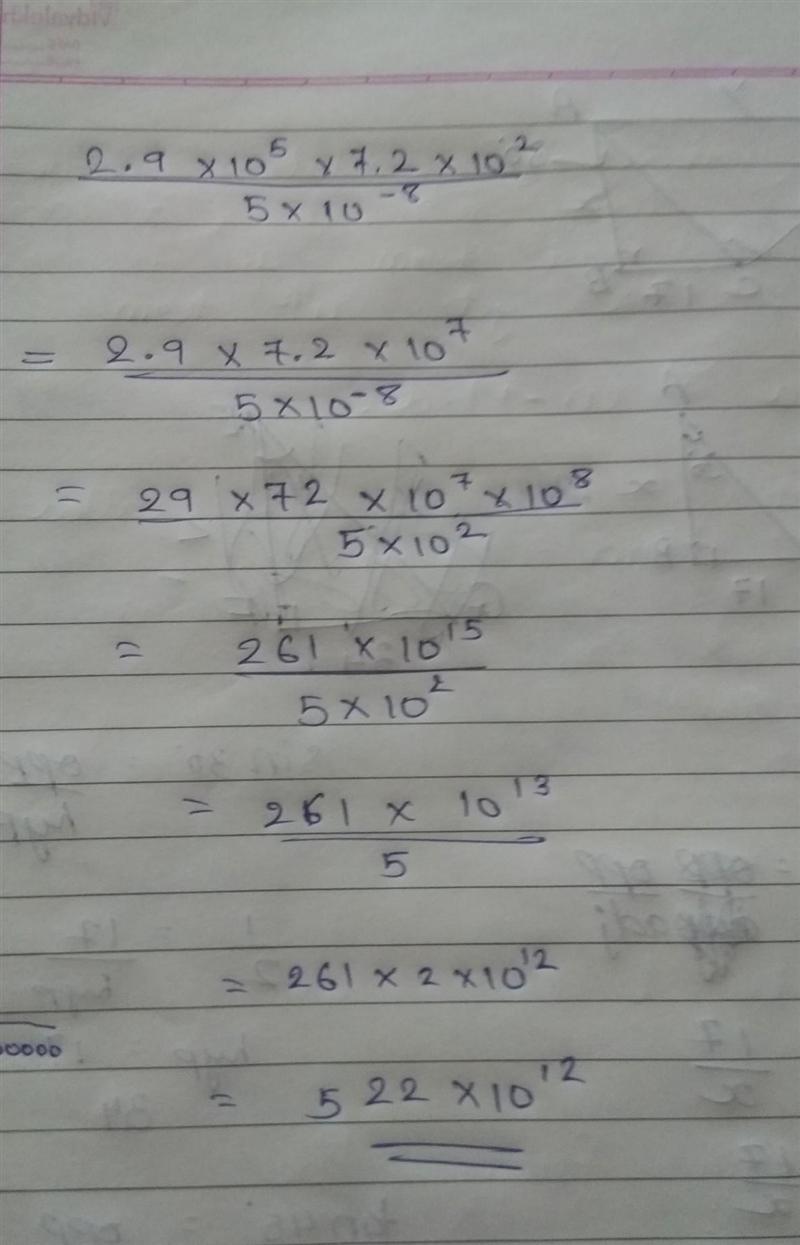 2.9 × 10⁵ × 7.2 × 10²
5 × 10⁻⁸
= 2.9 × 7.2 × 10⁷
5 × 10⁻⁸
= 29 × 72 × 10⁷ × 10⁸
5 × 10²
= 261 × 10¹⁵
5 × 10²
= 261 × 10¹³
5
= 261 × 2 × 10¹²
0000
= 522 × 10¹²